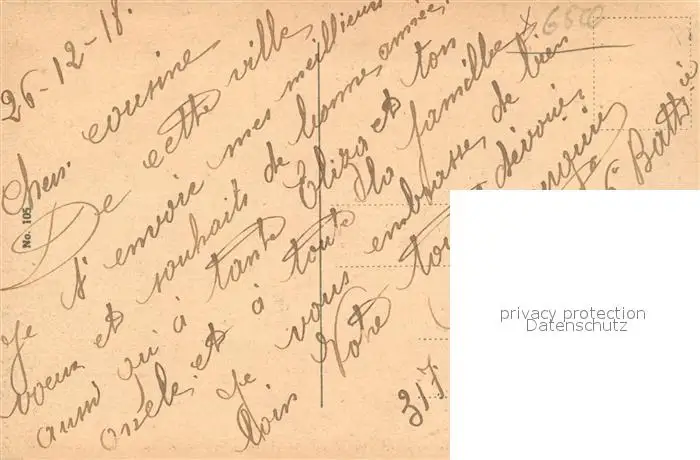 26-12-18.
Cher cousine
De cette ville
Je t'envoie mes meilleurs
voeux et souhaits de bonne année,
aussi qu'à tante Eliza et ton
oncle, et à toute la famille
Je vous embrasse, de bien
loin Votre tout dévoué,
6e Battrie
317
No. 105
6500
privacy protection
Datenschutz